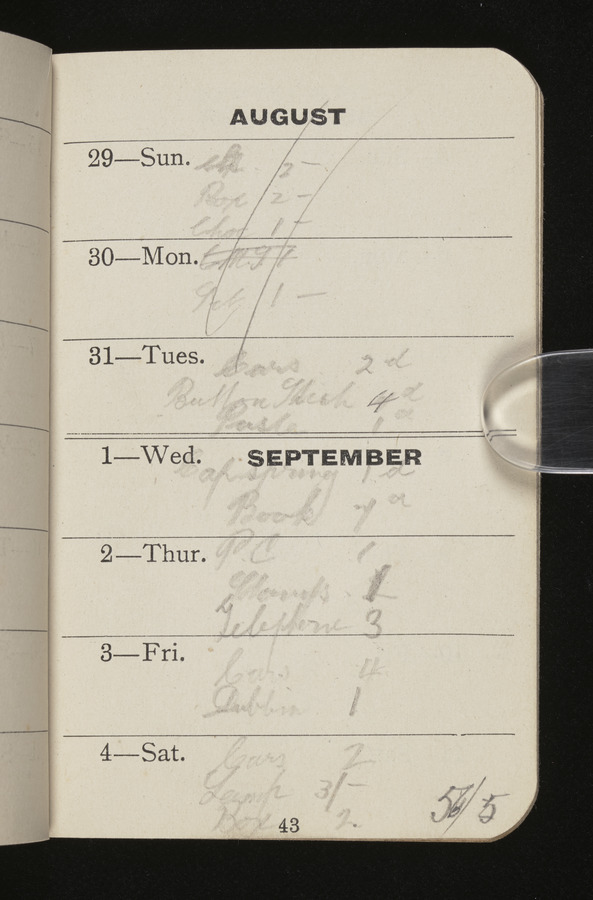 AUGUST
29—Sun. 2 –
Box 2 –
Choc 1 –
30—Mon.
1 –
31—Tues. Cars 2d
Button Stick 4d
Paste 1d
1—Wed. SEPTEMBER
Cap spring 1d
Book
2—Thur. P.C 1
Stamps 1
Telephone 3
3—Fri.
Cars 4
Dubbin 1
4—Sat. Cars 2
Lamp 3/–
Box 2
43